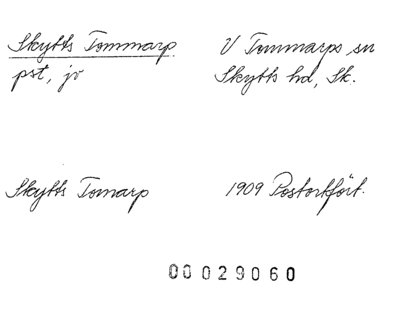 Skytts Tommarp
pst, jv
V Tommarps sn
Skytts hd, Sk.
Skytts Tomarp
1909 Postortfört.
00029060